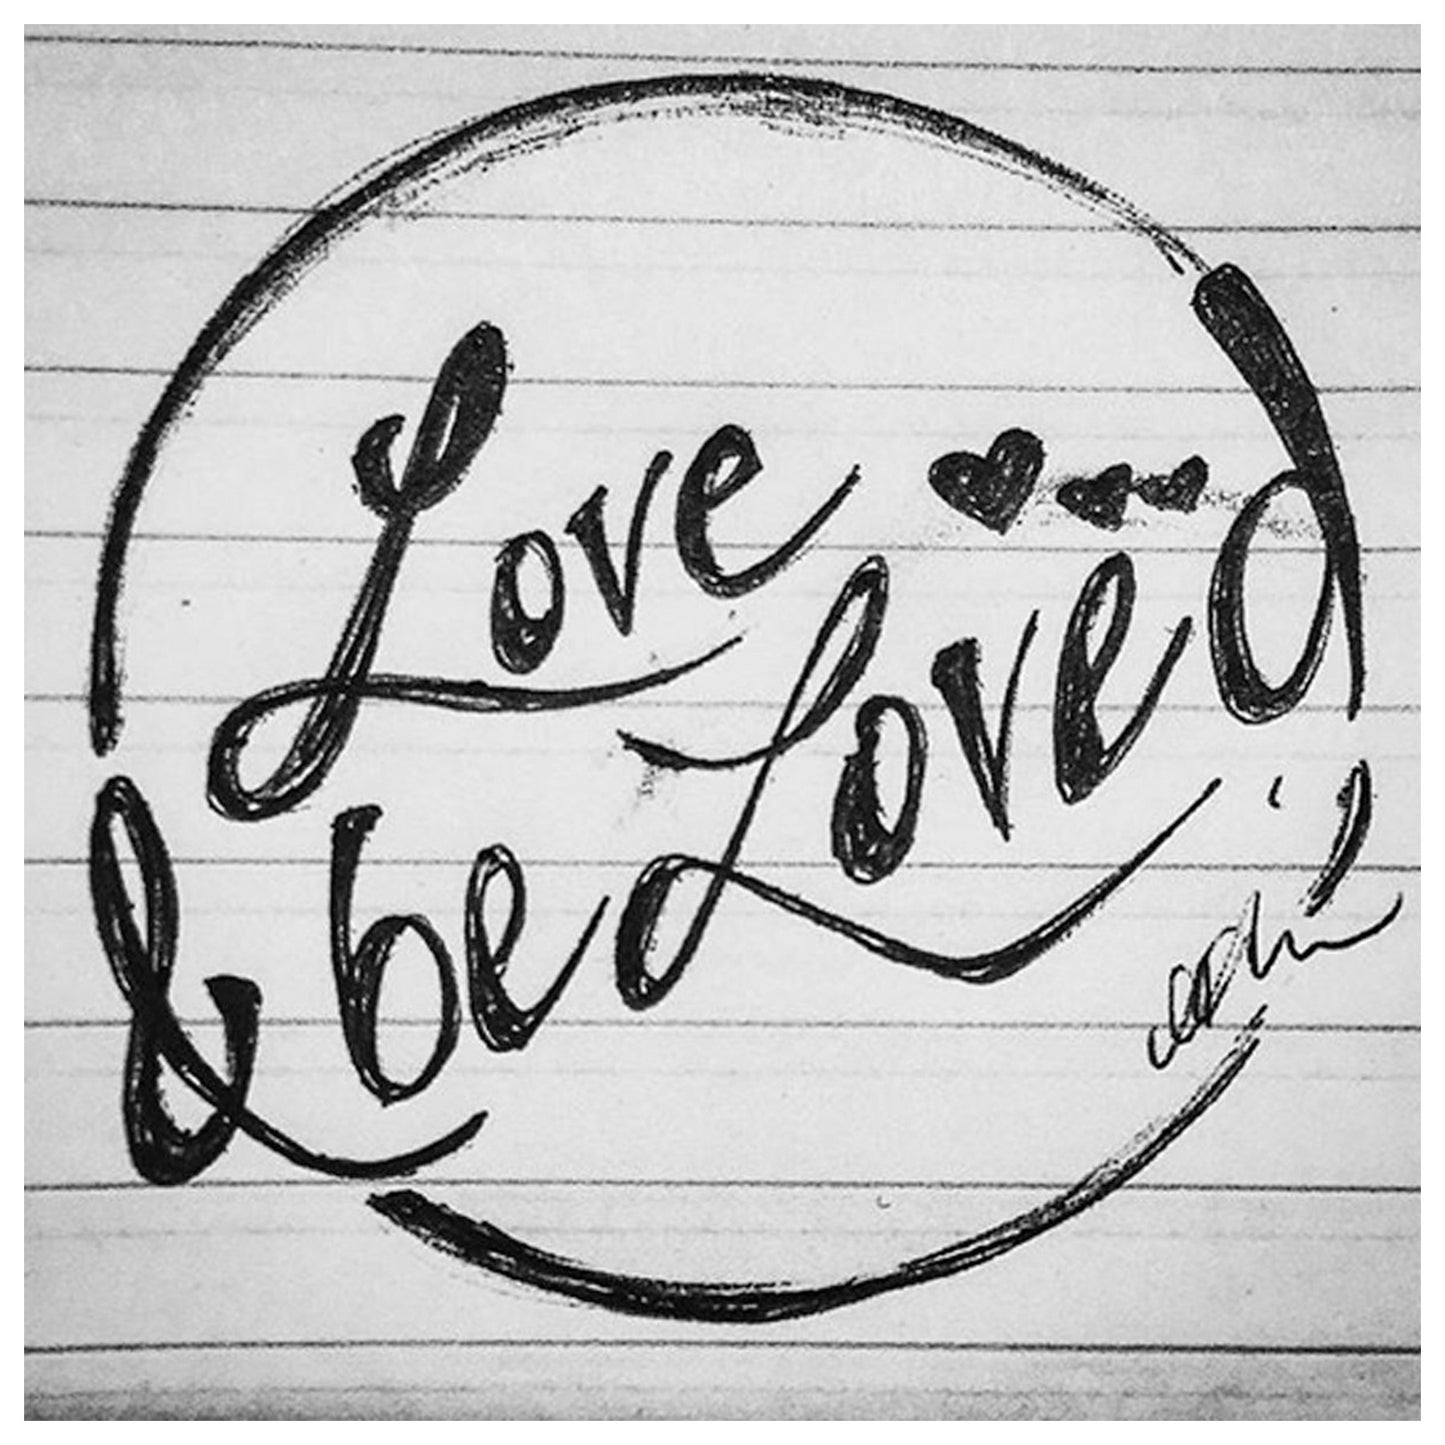 Love
& be Loved